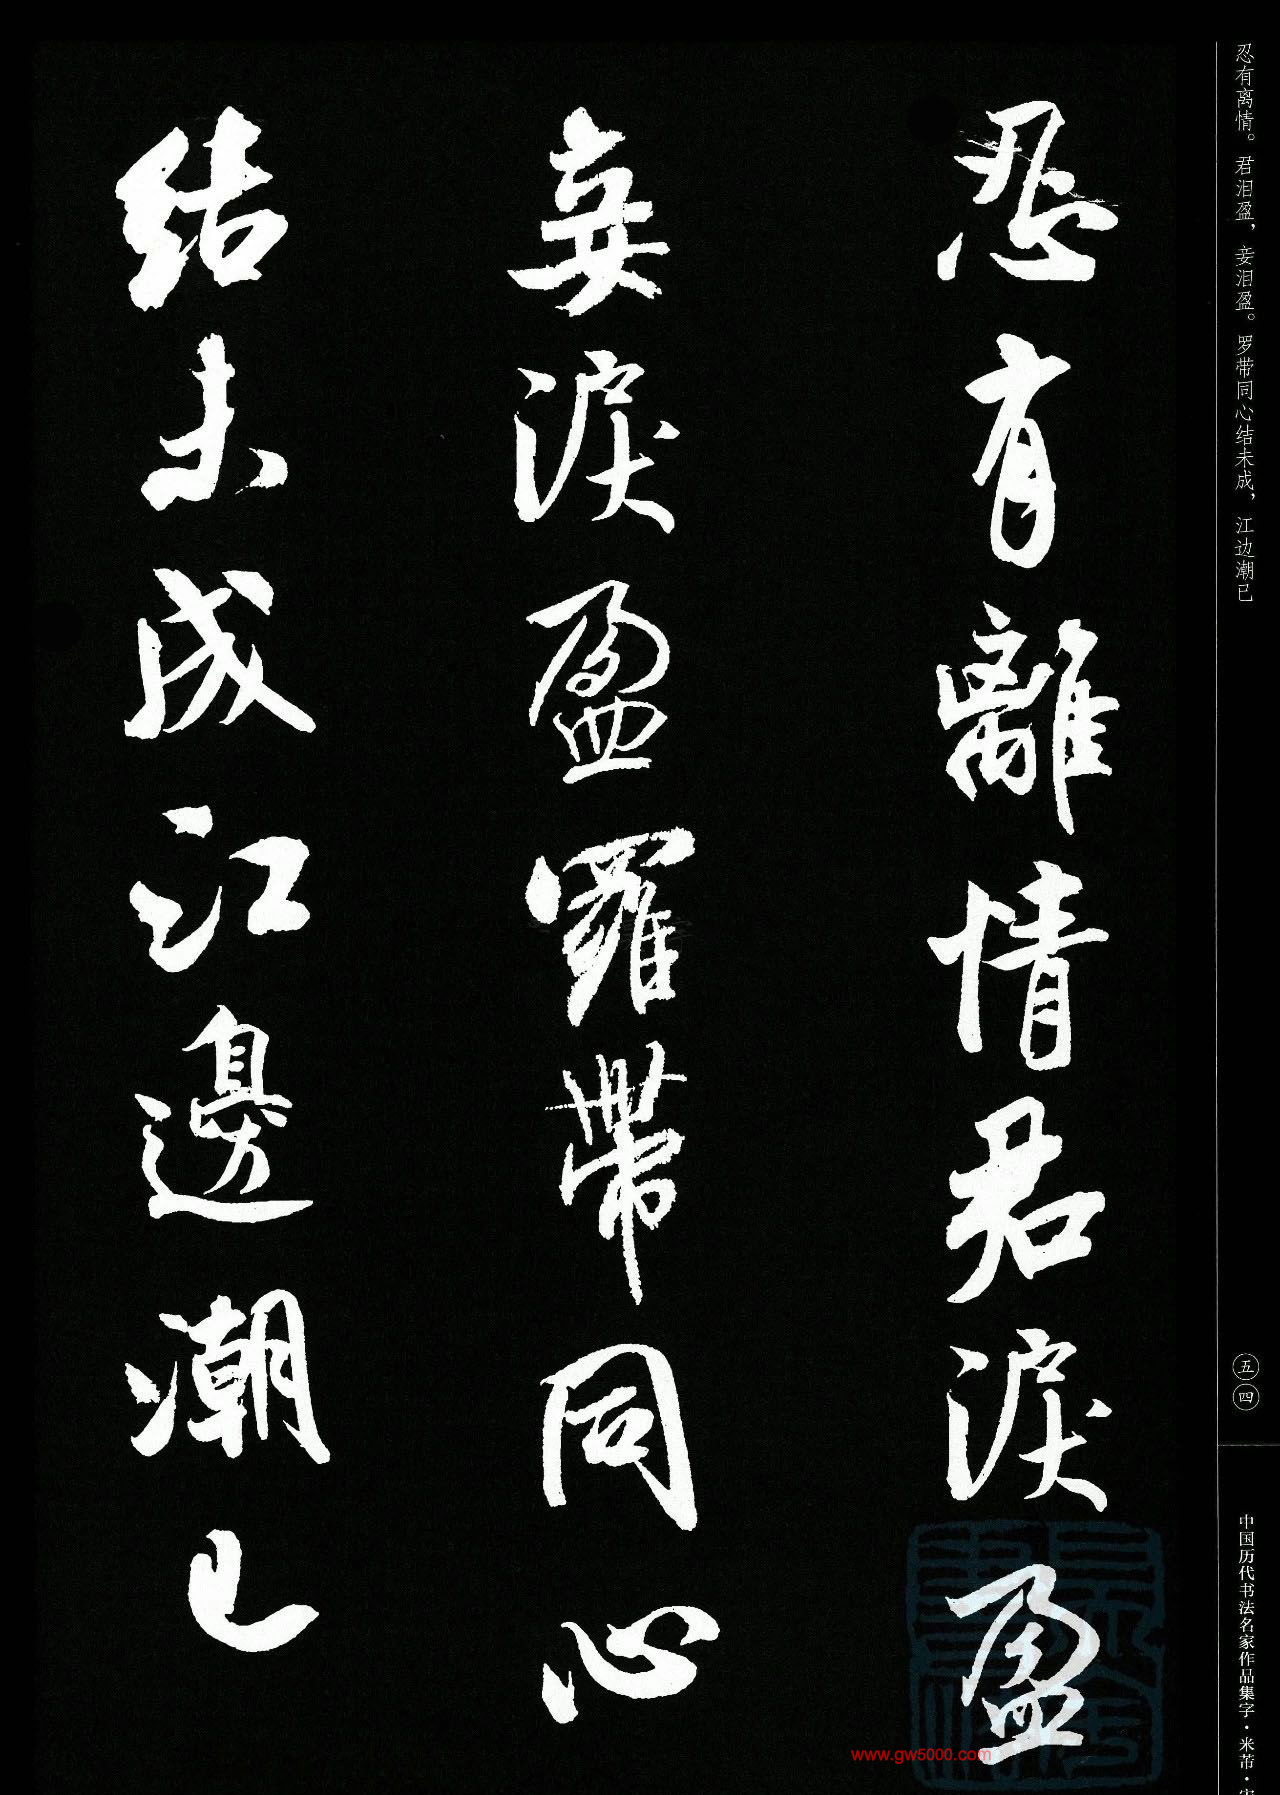 忍有離情君淚盈
妾淚盈羅帶同心
結未成江邊潮已
忍有离情。君泪盈，妾泪盈。罗带同心结未成，江边潮已
五四
中国历代书法名家作品集字·米芾·宋
www.gw5000.com